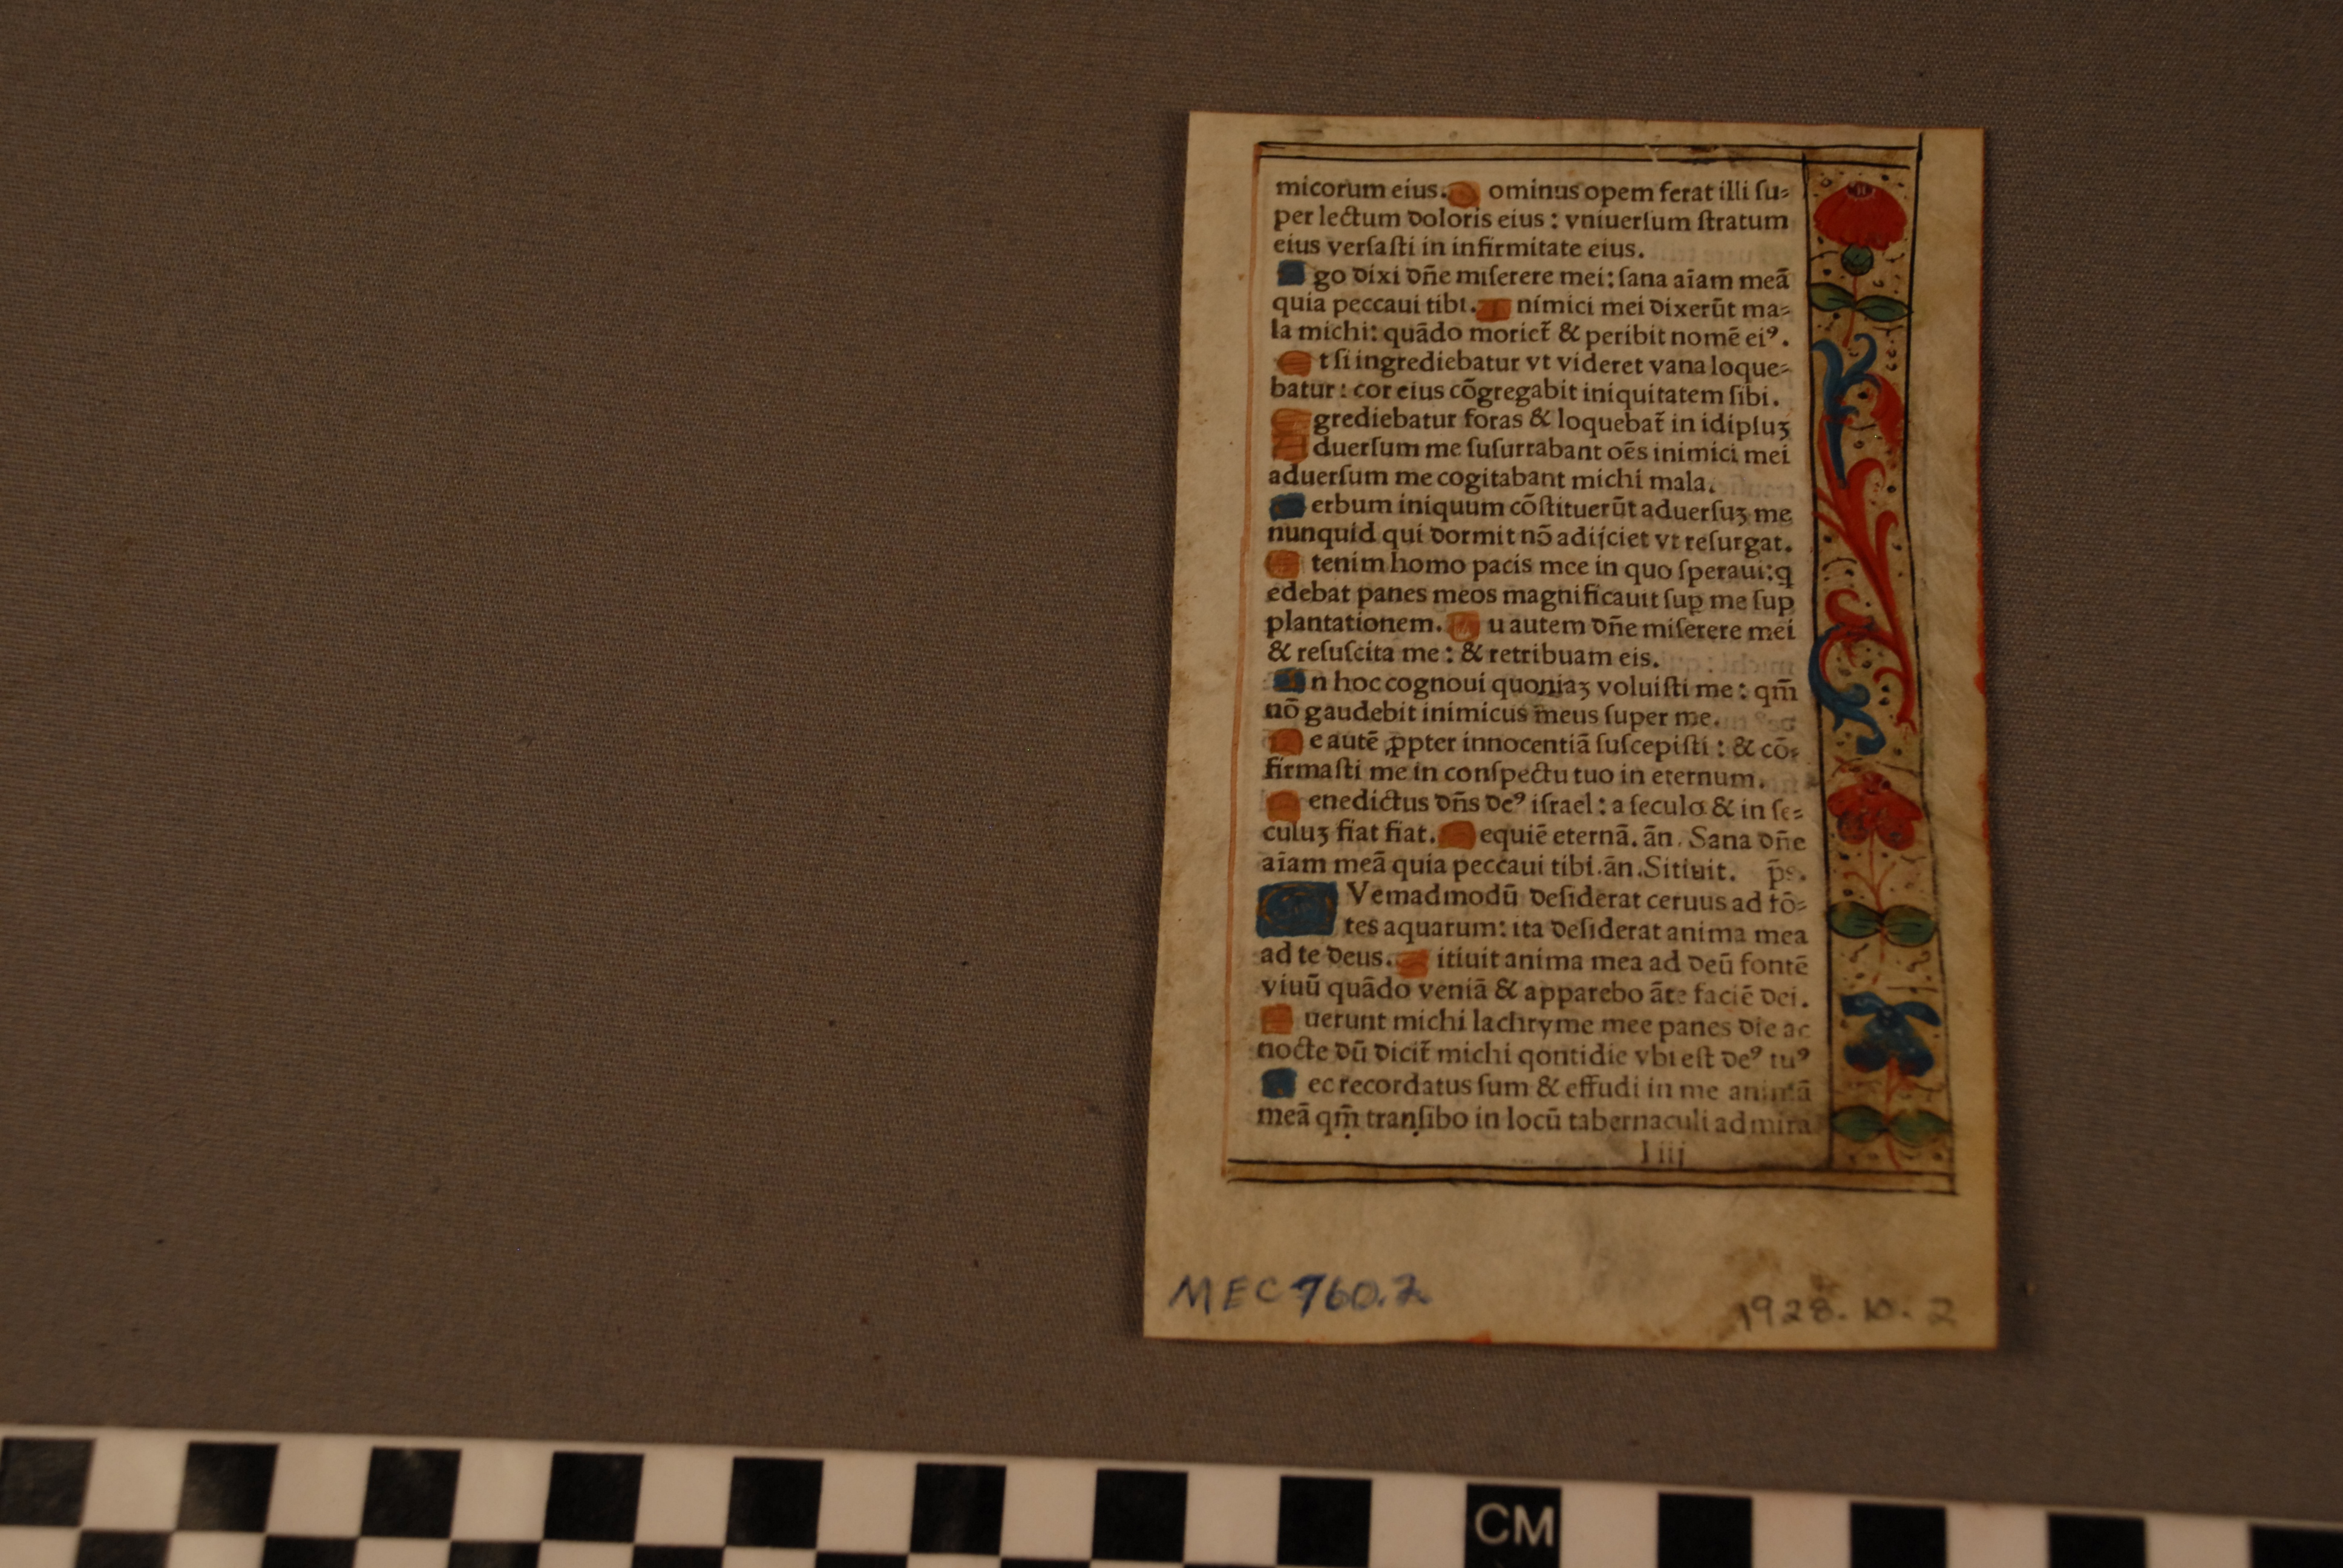 micorum eius. D ominus opem ferat illi ſu⸗
per lectum doloris eius : vniuerſum ſtratum
eius verſaſti in infirmitate eius.
E go dixi dn̄e miſerere mei: ſana aīam meā
quia peccaui tibi. I nimici mei dixerūt ma⸗
la michi: quādo moriet̄ & peribit nomē eiꝰ.
E t ſi ingrediebatur vt videret vana loque⸗
batur : cor eius cōgregabit iniquitatem ſibi.
E grediebatur foras & loquebat̄ in idipſuʒ
A duerſum me ſuſurrabant oēs inimici mei
aduerſum me cogitabant michi mala.
V erbum iniquum cōſtituerūt aduerſuʒ me
nunquid qui dormit nō adijciet vt reſurgat.
E tenim homo pacis mee in quo ſperaui: q̄
edebat panes meos magnificauit ſuꝑ me ſuꝑ
plantationem. T u autem dn̄e miſerere mei
& reſuſcita me : & retribuam eis.
I n hoc cognoui quoniaʒ voluiſti me : qm̄
nō gaudebit inimicus meus ſuper me.
M e autē ꝓpter innocentiā ſuſcepiſti : & cō⸗
firmaſti me in conſpectu tuo in eternum.
B enedictus dn̄s deꝰ iſrael : a ſeculo & in ſe⸗
culuʒ fiat fiat. R equiē eternā. ān. Sana dn̄e
aīam meā quia peccaui tibi. ān. Sitiuit. p̄s.
Q Vemadmodū deſiderat ceruus ad fō⸗
tes aquarum: ita deſiderat anima mea
ad te deus. S itiuit anima mea ad deū fontē
viuū quādo veniā & apparebo āte faciē dei.
F uerunt michi lachryme mee panes die ac
nocte dū dicit̄ michi qontidie vbi eſt deꝰ tuꝰ
H ec recordatus ſum & effudi in me animā
meā qm̄ tranſibo in locū tabernaculi admira
I iij
MEC 760.2
1928.10.2